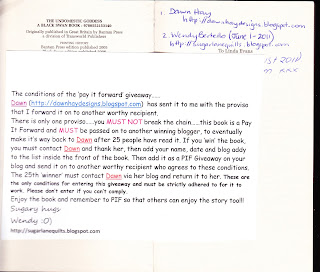 THE UNDOMESTIC GODDESS
A BLACK SWAN BOOK : 9780552772749
Originally published in Great Britain by Bantam Press
a division of Transworld Publishers
PRINTING HISTORY
Bantam Press edition published 2005
1. Dawn Hay
http://dawnhaydesigns.blogspot.com
2. Wendy (June 1-2011)
http://sugarlanequilts.blogspot.com
To Linda Evans
xxx
The conditions of the 'pay it forward' giveaway.....
Dawn (http://dawnhaydesigns.blogspot.com) has sent it to me with the proviso
that I forward it on to another worthy recipient.
There is only one proviso.....you MUST NOT break the chain.....this book is a Pay
It Forward and MUST be passed on to another winning blogger, to eventually
make it's way back to Dawn after 25 people have read it. If you 'win' the book,
you must contact Dawn and thank her, then add your name, date and blog addy
to the list inside the front of the book. Then add it as a PIF Giveaway on your
blog and send it on to another worthy recipient who agrees to these conditions.
The 25th 'winner' must contact Dawn via her blog and return it to her. These are
the only conditions for entering this giveaway and must be strictly adhered to for it to
work. Please don't enter if you can't comply.
Enjoy the book and remember to PIF so that others can enjoy the story too!!!
Sugary hugs
Wendy :O)
http://sugarlanequilts.blogspot.com